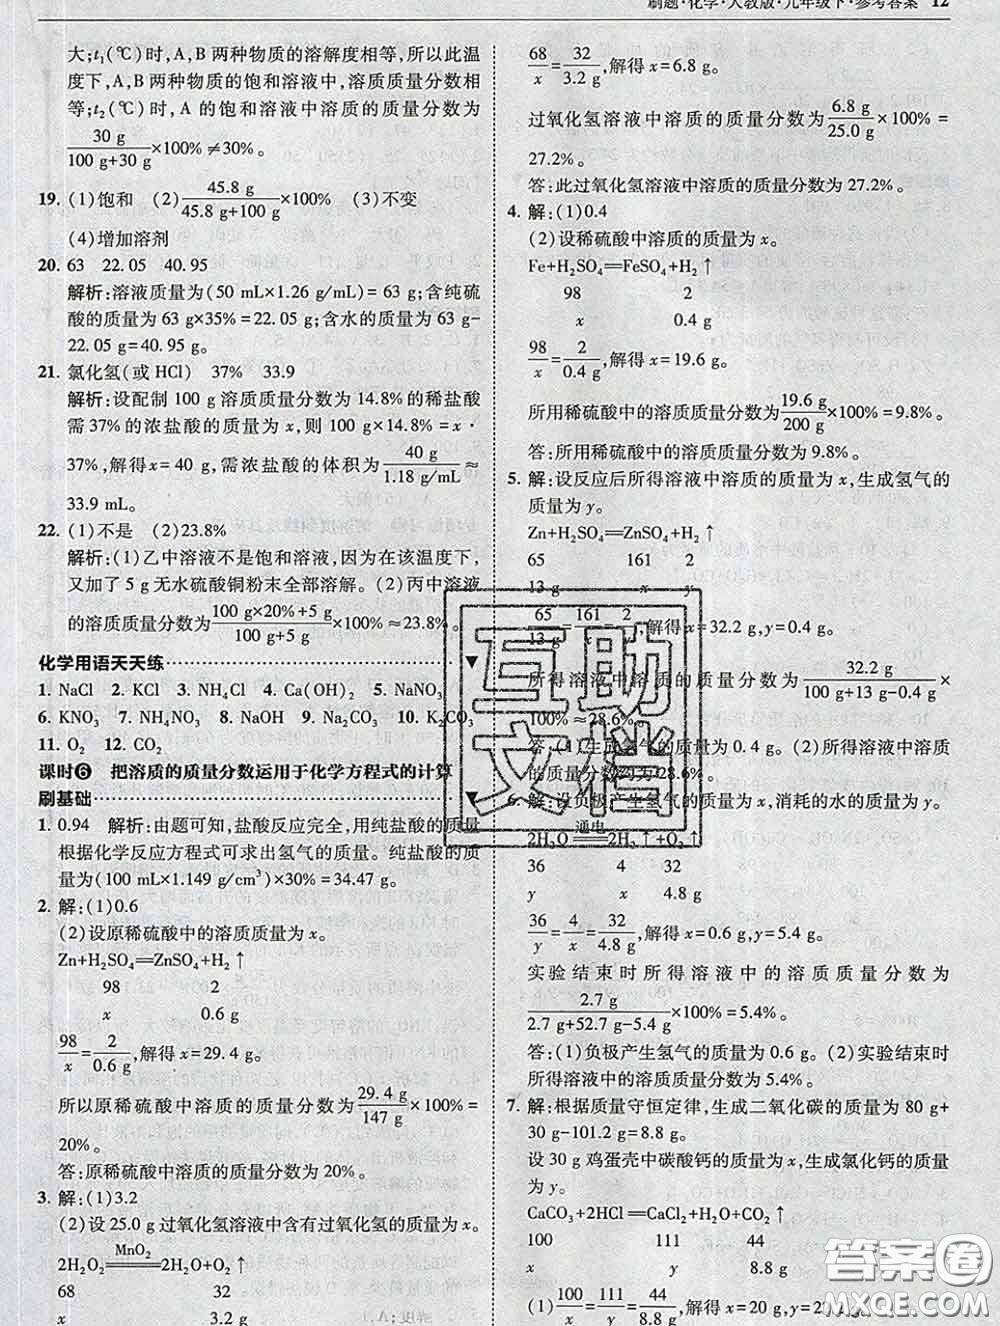 刷题·化学·人教版·九年级下·参考答案 12
大;t₁(℃)时,A,B两种物质的溶解度相等,所以此温
度下,A,B两种物质的饱和溶液中,溶质质量分数相
等;t₂(℃)时,A的饱和溶液中溶质的质量分数为
30 g/(100 g+30 g)×100%≠30%。
19. (1)饱和 (2)45.8 g/(45.8 g+100 g)×100% (3)不变
(4)增加溶剂
20. 63 22.05 40.95
解析:溶液质量为(50 mL×1.26 g/mL)=63 g;含纯硫
酸的质量为63 g×35%=22.05 g;含水的质量为63 g-
22.05 g=40.95 g。
21. 氯化氢(或HCl) 37% 33.9
解析:设配制100 g溶质质量分数为14.8%的稀盐酸
需37%的浓盐酸的质量为x,则100 g×14.8%=x·
37%,解得x=40 g,需浓盐酸的体积为40 g/1.18 g/mL≈
33.9 mL。
22. (1)不是 (2)23.8%
解析:(1)乙中溶液不是饱和溶液,因为在该温度下,
又加了5 g无水硫酸铜粉末全部溶解。(2)丙中溶液
的溶质质量分数为(100 g×20%+5 g)/(100 g+5 g)×100%≈23.8%。
化学用语天天练
1. NaCl 2. KCl 3. NH₄Cl 4. Ca(OH)₂ 5. NaNO₃
6. KNO₃ 7. NH₄NO₃ 8. NaOH 9. Na₂CO₃ 10. K₂CO₃
11. O₂ 12. CO₂
课时❻ 把溶质的质量分数运用于化学方程式的计算
刷基础
1. 0.94 解析:由题可知,盐酸反应完全,用纯盐酸的质量
根据化学反应方程式可求出氢气的质量。纯盐酸的质
量为(100 mL×1.149 g/cm³)×30%=34.47 g。
2. 解:(1)0.6
(2)设原稀硫酸中的溶质质量为x。
Zn+H₂SO₄══ZnSO₄+H₂↑
98 2
x 0.6 g
98/x=2/0.6 g,解得x=29.4 g。
所以原稀硫酸中溶质的质量分数为29.4 g/147 g×100%=
20%。
答:原稀硫酸中溶质的质量分数为20%。
3. 解:(1)3.2
(2)设25.0 g过氧化氢溶液中含有过氧化氢的质量为x。
MnO₂
2H₂O₂══2H₂O+O₂↑
68 32
x 3.2 g
68/x=32/3.2 g,解得x=6.8 g。
过氧化氢溶液中溶质的质量分数为6.8 g/25.0 g×100%=
27.2%。
答:此过氧化氢溶液中溶质的质量分数为27.2%。
4. 解:(1)0.4
(2)设稀硫酸中溶质的质量为x。
Fe+H₂SO₄══FeSO₄+H₂↑
98 2
x 0.4 g
98/x=2/0.4 g,解得x=19.6 g。
所用稀硫酸中的溶质质量分数为19.6 g/200 g×100%=9.8%。
答:所用稀硫酸中的溶质质量分数为9.8%。
5. 解:设反应后所得溶液中溶质的质量为x,生成氢气的
质量为y。
Zn+H₂SO₄══ZnSO₄+H₂↑
65 161 2
13 g x y
65/13 g=161/x=2/y,解得x=32.2 g,y=0.4 g。
所得溶液中溶质的质量分数为32.2 g/(100 g+13 g-0.4 g)×
100%≈28.6%。
答:(1)生成氢气的质量为0.4 g。(2)所得溶液中溶
质的质量分数约为28.6%。
6. 解:设负极产生氢气的质量为x,消耗的水的质量为y。
通电
2H₂O══2H₂↑+O₂↑
36 4 32
y x 4.8 g
36/y=4/x=32/4.8 g,解得x=0.6 g,y=5.4 g。
实验结束时所得溶液中的溶质质量分数为
2.7 g/(2.7 g+52.7 g-5.4 g)×100%=5.4%。
答:(1)负极产生氢气的质量为0.6 g。(2)实验结束时
所得溶液中的溶质质量分数为5.4%。
7. 解:根据质量守恒定律,生成二氧化碳的质量为80 g+
30 g-101.2 g=8.8 g。
设30 g鸡蛋壳中碳酸钙的质量为x,生成氯化钙的质量
为y。
CaCO₃+2HCl══CaCl₂+H₂O+CO₂↑
100 111 44
x y 8.8 g
(1)100/x=111/y=44/8.8 g,解得x=20 g,y=22.2 g
互助
文档
答案圈
MXQE.COM